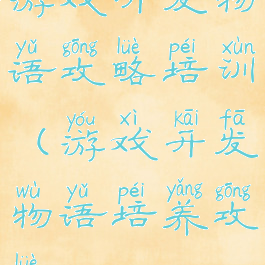 游戏开发物
yǔ gōng lüè péi xùn
语攻略培训
yóu xì kāi fā
(游戏开发
wù yǔ péi yǎng gōng
物语培养攻
lüè